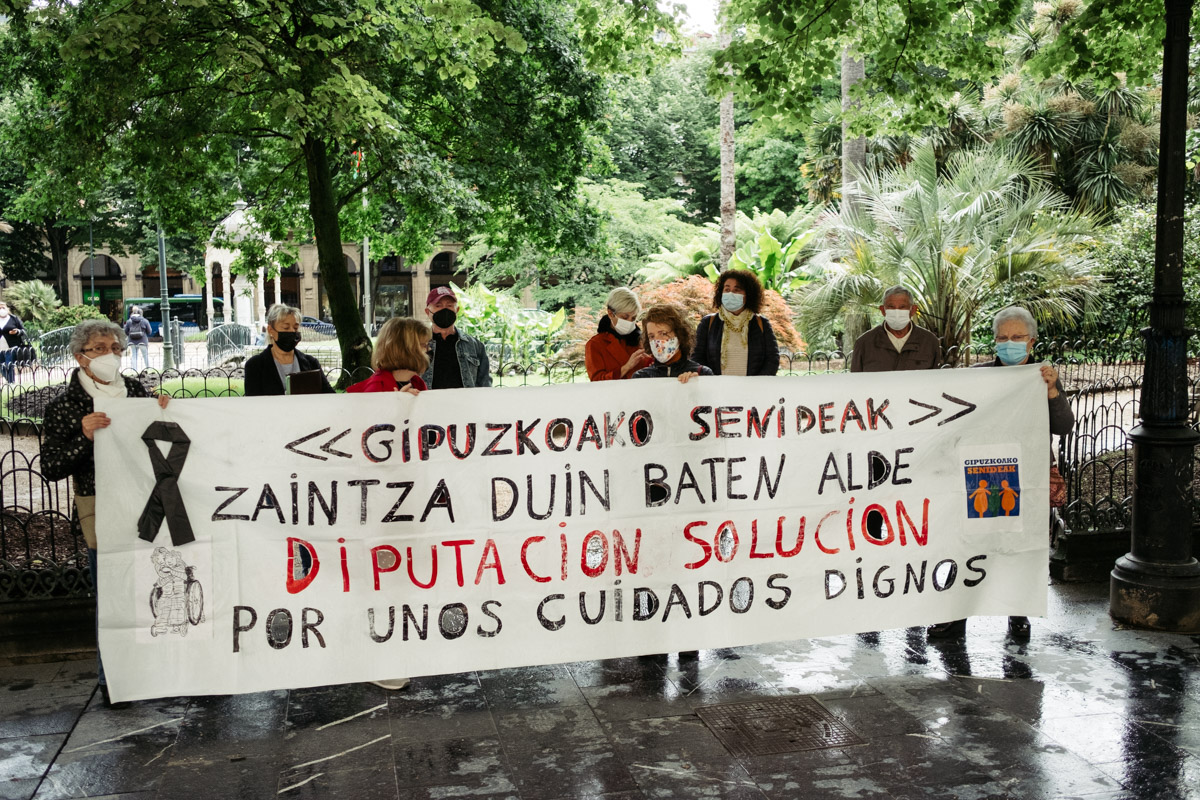 <<GiPUZKOAKO SENiDEAK>>
ZAiNTZA DUiN BATEN ALDE
DiPUTACiON SOLUCiON
POR UNOS CUiDADOS DiGNOS
GIPUZKOAKO
SENIDEAK